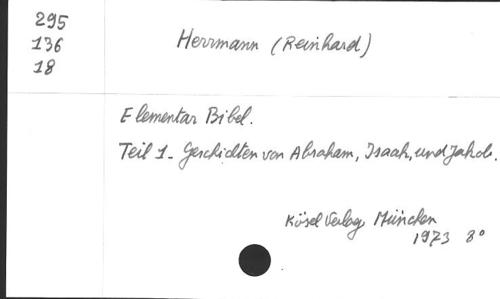 295
136
18
Herrmann (Reinhard)
Elementar Bibel.
Teil 1. Geschichten von Abraham, Isaak, und Jakob.
Kösel Verlag München
1973 8°